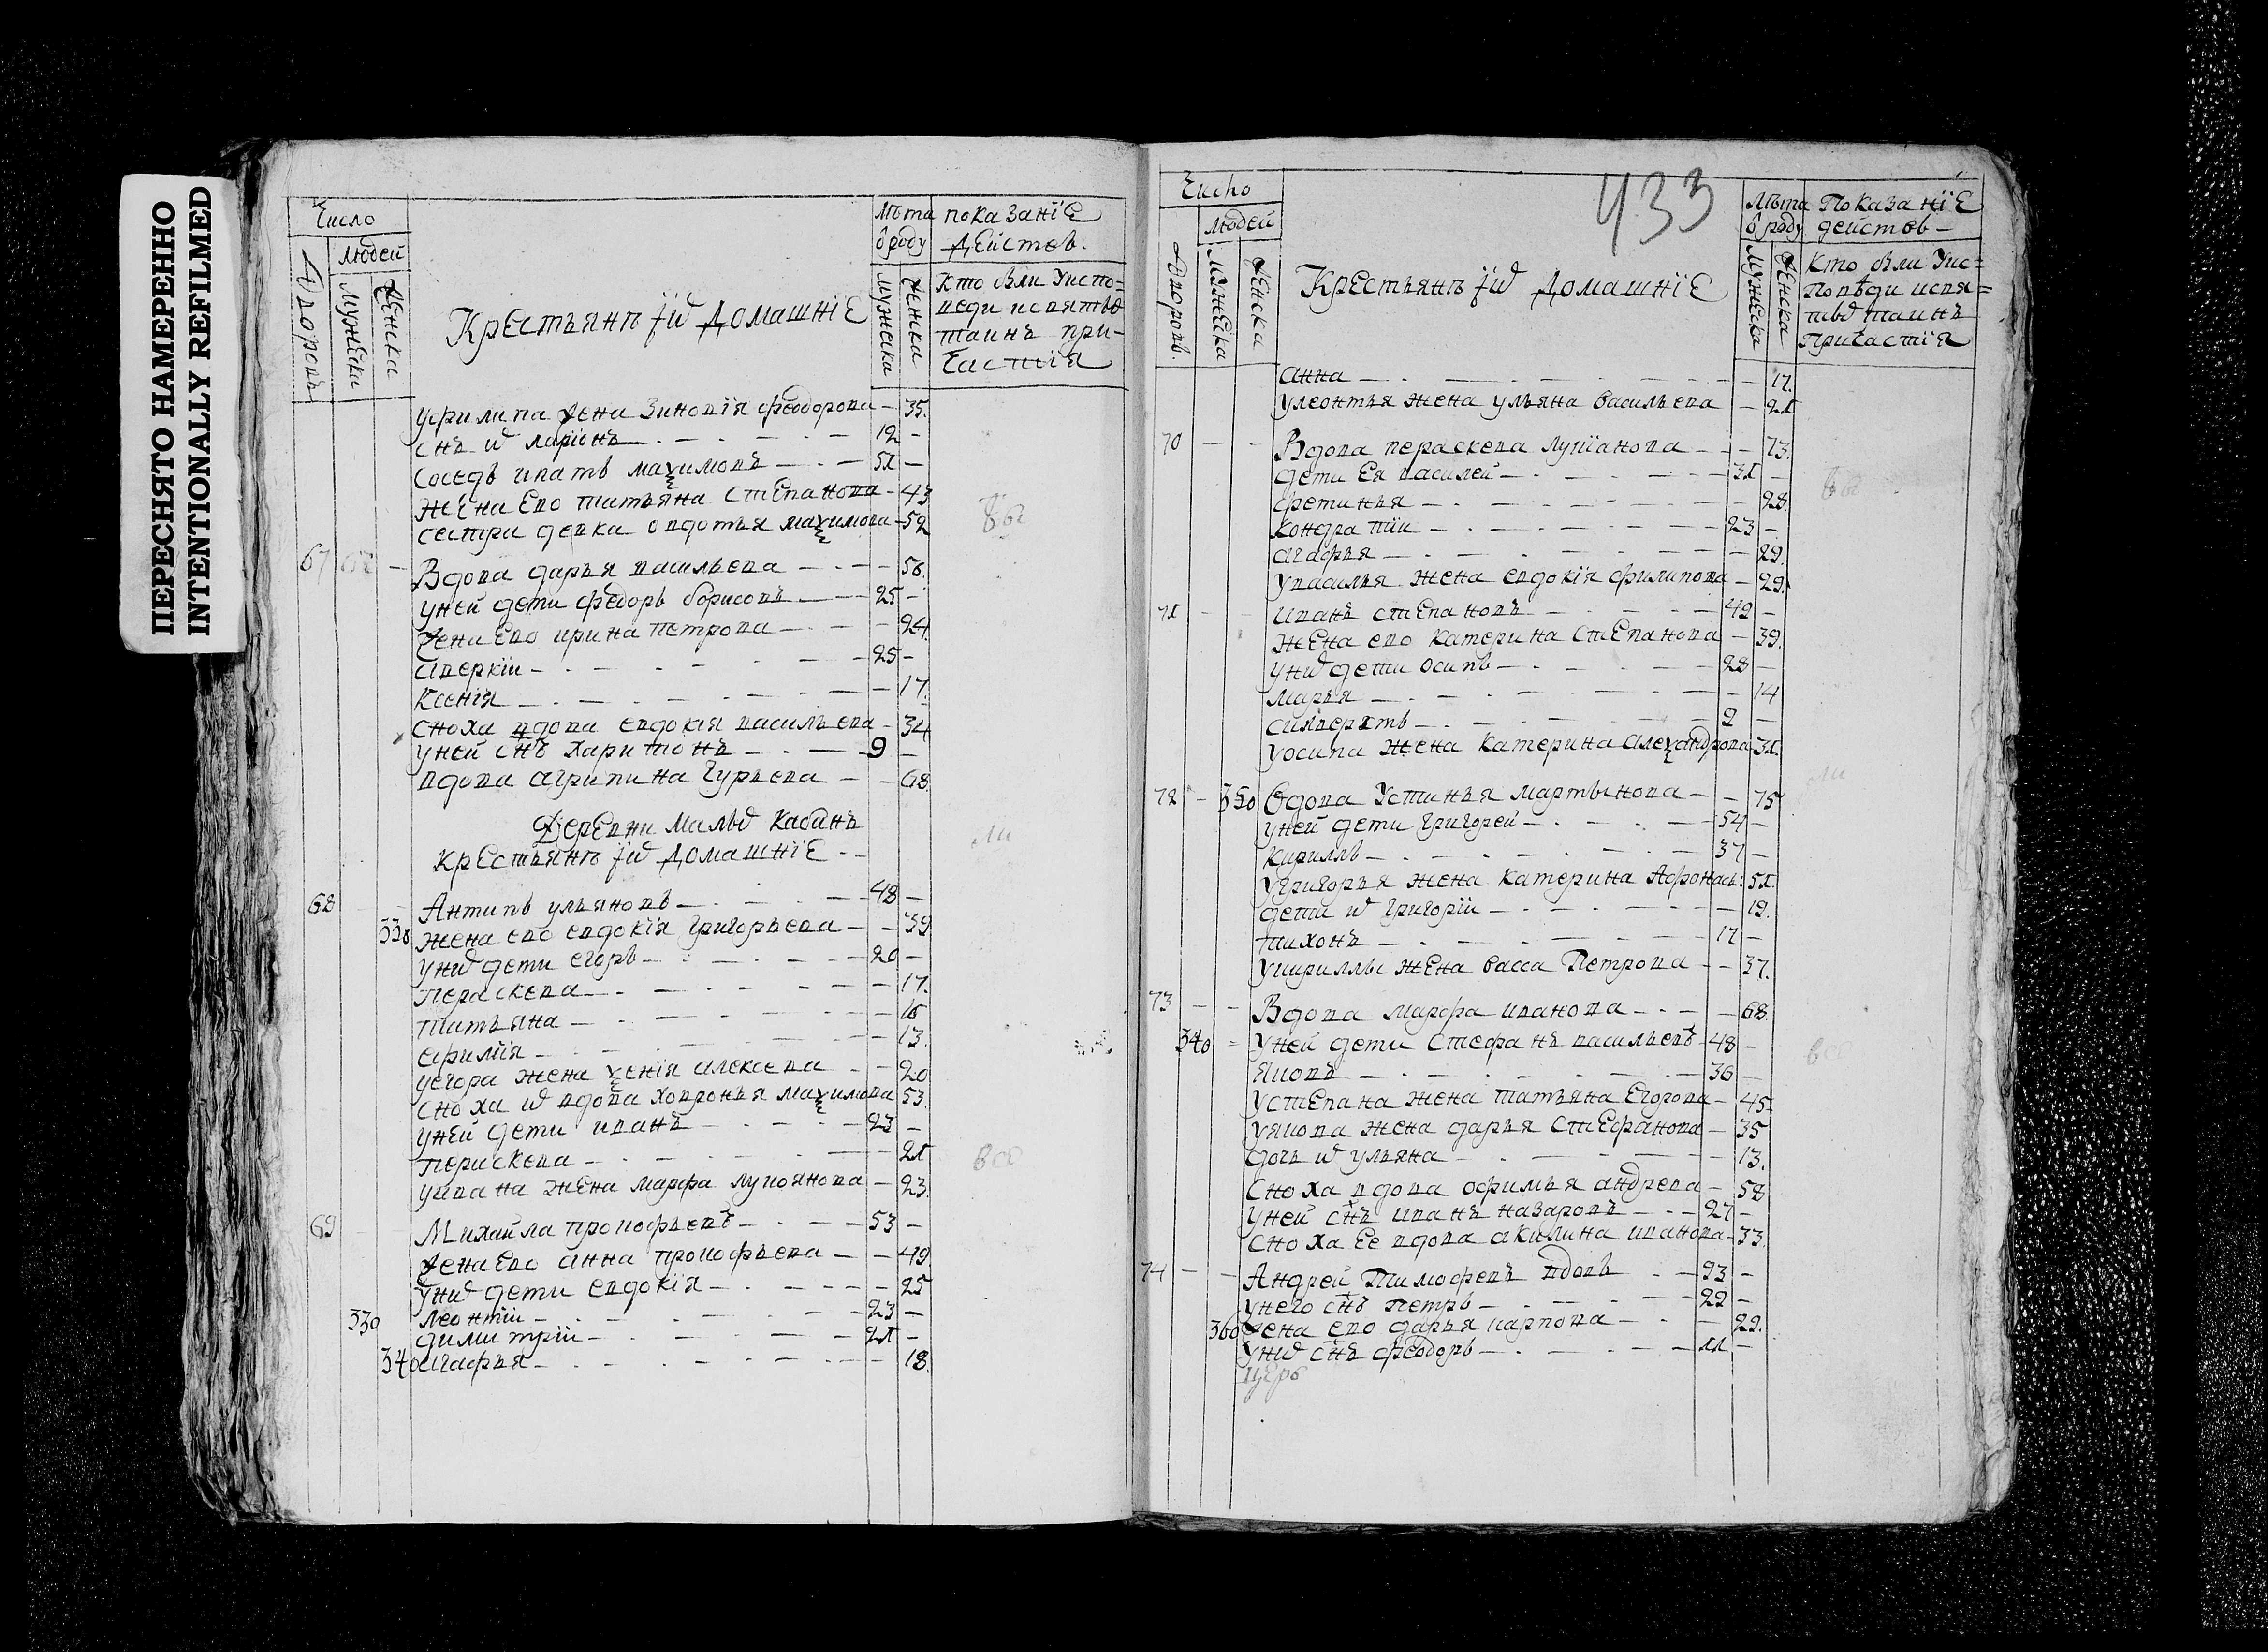 ПЕРЕСНЯТО НАМЕРЕННО
INTENTIONALLY REFILMED
Число
Дворовъ
Людей
Мужеска
Женска
Крестьянъ їѡ Домашніе
Лѣта ѿ роду
Мужеска
Женска
показаніе
действ.
Кто былъ у испо=
веди и святыѡ
таинъ при-
частия
уфилипа жена Зиновія феодорова - 35.
снъ иѡ ларіонъ 12 -
соседъ ипатъ маѯимовъ 51 -
жена ево татьяна степанова - 43
сестри девка овдотья маѯимова - 52
бы
67 Вдова дарья васильева - 56.
уней дети федоръ борисовъ 25 -
жена ево ирина петрова - 24.
аверкіи 25 -
Ксенія - 17.
сноха вдова евдокія васильева - 34
уней снъ харитонъ 9 -
вдова агрипина гурьева - 68.
Деревни малыѡ кабанъ
крестьянъ їѡ домашніе
ли
68 Антипъ ульяновъ 48 -
330 жена ево евдокія григорьева - 39
униѡ дети егоръ 20 -
пераскева - 17.
татьяна - 16
ефимія - 13.
уегора жена ѯенія алексева - 20
сноха иѡ вдова ховронья маѯимова 53.
уней дети иванъ 23 -
перискева - 21
уивана жена марфа лукоянова - 23.
все
69 Михайла прокофьевъ 53 -
жена ево анна прокофьева - 49.
униѡ дети евдокія - 25
330 леонтіи 23 -
димитріи 21 -
340 агафья - 18.
433
Число
Дворовъ.
Людей
Мужеска
Женска
Крестьянъ їѡ домашніе
Лѣта ѿ роду
Мужеска
Женска
Показаніе
действ -
Кто былъ у ис=
поведи и свя=
тыѡ таинъ
Причастія
анна - 17.
улеонтья жена ульяна васильева - 21
70 Вдова пераскева лукіанова - 73.
дети ея василей 31 -
фетинья - 28.
кондратіи 23 -
агафья - 29.
увасилья жена евдокія филипова - 29.
бы
71 иванъ степановъ 49 -
жена ево катерина степанова - 39.
униѡ дети осипъ 28 -
марья - 14
силверстъ 2 -
уосипа жена катерина алеѯандрова 31.
ли
72 - 350 Вдова устинья мартынова - 75
уней дети григорей 54 -
кириллъ 37 -
угригорья жена катерина афонась: 51.
дети иѡ григоріи - 19.
тихонъ 17 -
укириллы жена васса петрова - 37.
73 Вдова марфа иванова - 68.
340 уней дети стефанъ васильевъ 48 -
яковъ 36 -
устепана жена татьяна егорова - 45.
уякова жена дарья стефанова - 35
дочь иѡ ульяна - 13.
сноха вдова офимья андрева - 58
уней снъ иванъ назаровъ 27 -
сноха ее вдова акилина иванова - 33.
все
74 Андрей тимофеевъ вдовъ 93 -
унего снъ петръ 29 -
360 жена ево дарья карпова - 29.
униѡ снъ феодоръ 11 -
церб